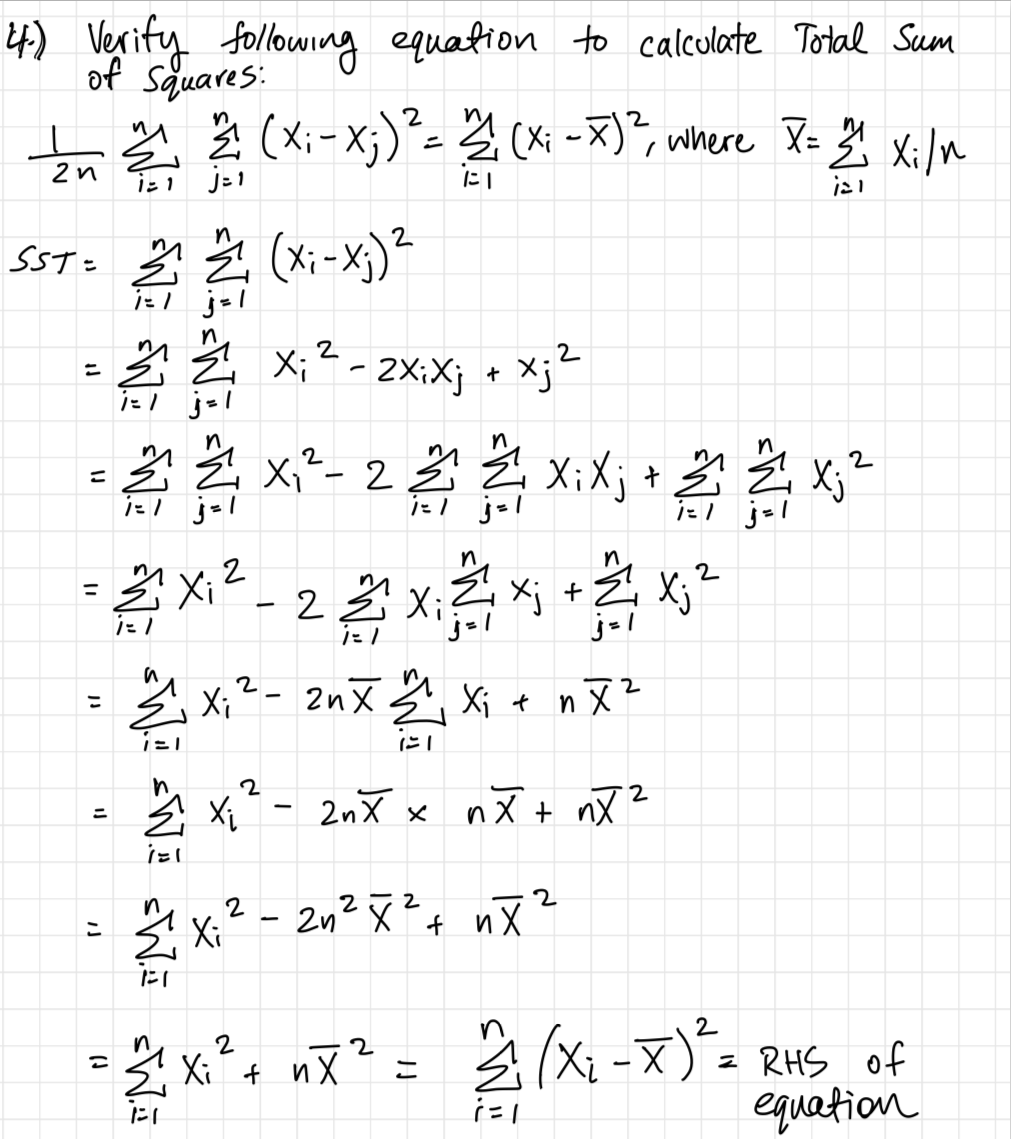 4.) Verify following equation to calculate Total Sum
of Squares:
1/2n Σ_{i=1}^{n} Σ_{j=1}^{n} (Xi - Xj)² = Σ_{i=1}^{n} (Xi - X̄)², where X̄ = Σ_{i=1}^{n} Xi/n
SST = Σ_{i=1}^{n} Σ_{j=1}^{n} (Xi - Xj)²
= Σ_{i=1}^{n} Σ_{j=1}^{n} Xi² - 2XiXj + Xj²
= Σ_{i=1}^{n} Σ_{j=1}^{n} Xi² - 2 Σ_{i=1}^{n} Σ_{j=1}^{n} XiXj + Σ_{i=1}^{n} Σ_{j=1}^{n} Xj²
= Σ_{i=1}^{n} Xi² - 2 Σ_{i=1}^{n} Xi Σ_{j=1}^{n} Xj + Σ_{j=1}^{n} Xj²
= Σ_{i=1}^{n} Xi² - 2nX̄ Σ_{i=1}^{n} Xi + nX̄²
= Σ_{i=1}^{n} Xi² - 2nX̄ × nX̄ + nX̄²
= Σ_{i=1}^{n} Xi² - 2n²X̄² + nX̄²
= Σ_{i=1}^{n} Xi² + nX̄² = Σ_{i=1}^{n} (Xi - X̄)² = RHS of
equation